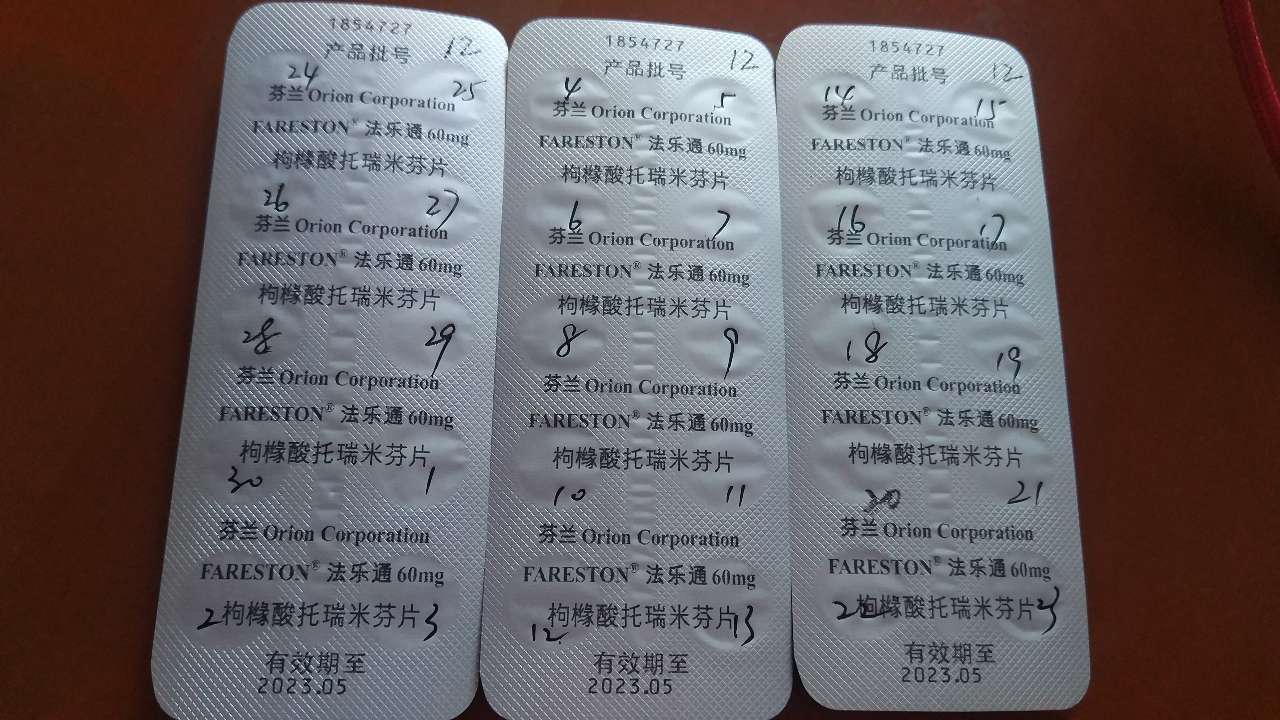 1854727
产品批号 12
24 25
芬兰 Orion Corporation
FARESTON® 法乐通 60mg
枸橼酸托瑞米芬片
26 27
芬兰 Orion Corporation
FARESTON® 法乐通 60mg
枸橼酸托瑞米芬片
28 29
芬兰 Orion Corporation
FARESTON® 法乐通 60mg
枸橼酸托瑞米芬片
30 1
芬兰 Orion Corporation
FARESTON® 法乐通 60mg
2 枸橼酸托瑞米芬片 3
有效期至
2023.05
1854727
产品批号 12
4 5
芬兰 Orion Corporation
FARESTON® 法乐通 60mg
枸橼酸托瑞米芬片
6 7
芬兰 Orion Corporation
FARESTON® 法乐通 60mg
枸橼酸托瑞米芬片
8 9
芬兰 Orion Corporation
FARESTON® 法乐通 60mg
枸橼酸托瑞米芬片
10 11
芬兰 Orion Corporation
FARESTON® 法乐通 60mg
枸橼酸托瑞米芬片
12 13
有效期至
2023.05
1854727
产品批号 12
14 15
芬兰 Orion Corporation
FARESTON® 法乐通 60mg
枸橼酸托瑞米芬片
16 17
芬兰 Orion Corporation
FARESTON® 法乐通 60mg
枸橼酸托瑞米芬片
18 19
芬兰 Orion Corporation
FARESTON® 法乐通 60mg
枸橼酸托瑞米芬片
20 21
芬兰 Orion Corporation
FARESTON® 法乐通 60mg
22 枸橼酸托瑞米芬片 23
有效期至
2023.05